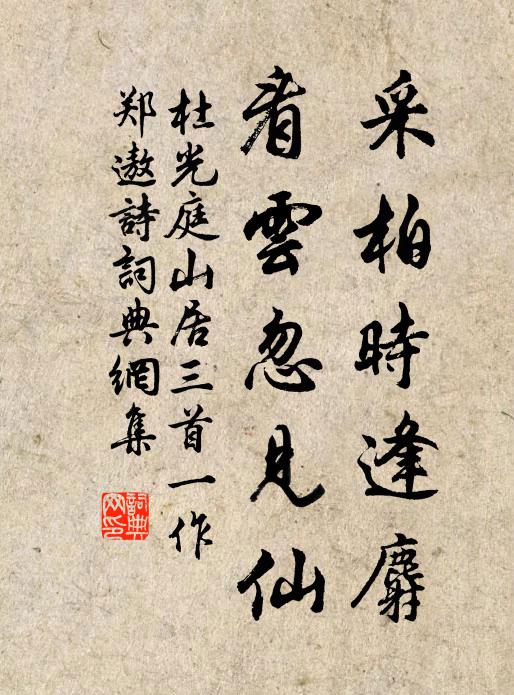 采柏時逢麝
看雲忽見仙
杜光庭山居三首一作
郑遨詩詞典網集
詞典网印